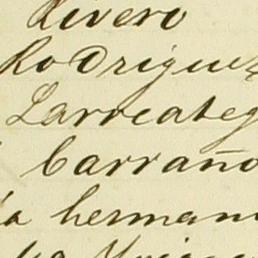 Rivero
Rodriguez
Larreateg
Carraño
la herman